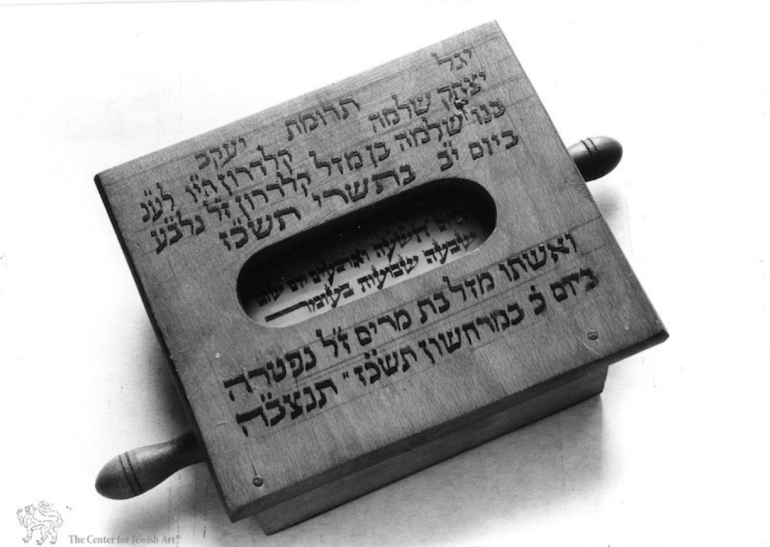 יגל תרומת יעקב
יצחק שלמה קלדרון הי״ו לע״נ
בנו שלמה בן מזל קלדרון ז״ל נלב״ע
ביום י״ב בתשרי תשכ״ז
תשעה וארבעים יום שהם
שבעה שבועות בעומר
ואשתו מזל בת מרים ז״ל נפטרה
ביום כ׳ במרחשון תשכ״ז תנצב״ה
The Center for Jewish Art